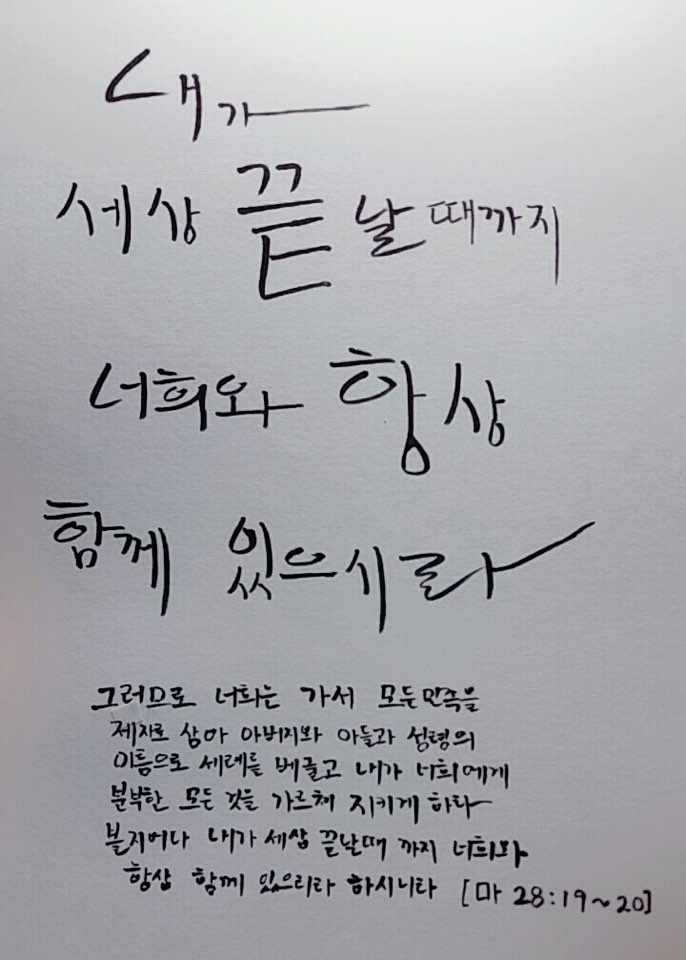 내가
세상 끝 날 때까지
너희와 항상
함께 있으시라
그러므로 너희는 가서 모든 민족을
제자로 삼아 아버지와 아들과 성령의
이름으로 세례를 베풀고 내가 너희에게
분부한 모든 것을 가르쳐 지키게 하라
볼지어다 내가 세상 끝날때 까지 너희와
항상 함께 있으리라 하시니라 [마 28:19~20]